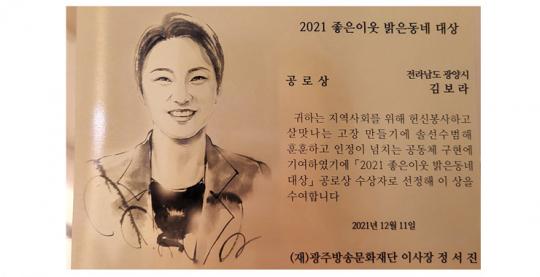 2021 좋은이웃 밝은동네 대상
공로상
전라남도 광양시
김보라
귀하는 지역사회를 위해 헌신봉사하고
살맛나는 고장 만들기에 솔선수범해
훈훈하고 인정이 넘치는 공동체 구현에
기여하였기에 「2021 좋은이웃 밝은동네
대상」 공로상 수상자로 선정해 이 상을
수여합니다
2021년 12월 11일
(재)광주방송문화재단 이사장 정서진